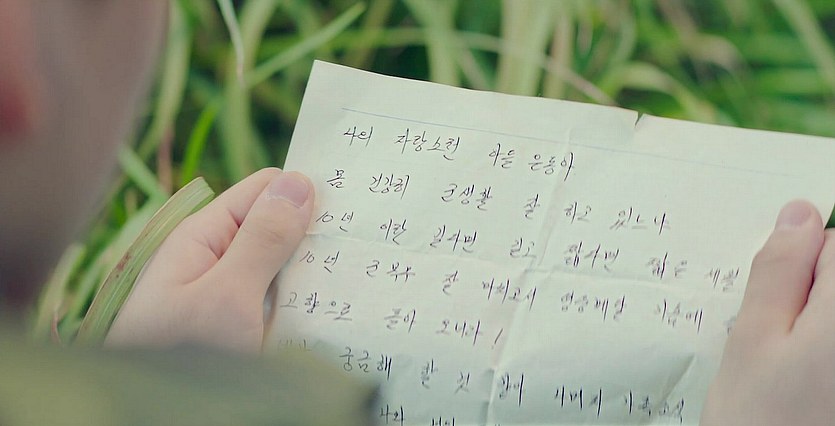 나의 자랑스런 아들 은동아
몸 건강히 군생활 잘 하고 있느냐
10년 이란 길자면 길고 짧자면 짧은 세월
10년 군복무 잘 마치고서 영웅메달 가슴에
고향으로 돌아 오너라!
궁금해 할 것 같아 아버지 가족소식